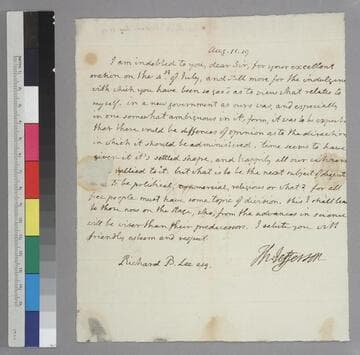 Aug. 11. 19
I am indebted to you, dear Sir, for your excellent
oration on the 4th of July, and still more for the indulgence
with which you have been so good as to view what relates to
myself. in a new government as ours was, and especially
in one somewhat ambiguous in it's form, it was to be expected
that there would be differences of opinion as to the direction
in which it should be administered. time seems to have
given it it's settled shape, and happily all our citizens
rallied to it. but what is to be the next subject of dissent
to be political, commercial, religious or what? for all
free people must have some topic of division. this I shall leave
to those now on the stage, who, from the advances in science
will be wiser than their predecessors. I salute you with
friendly esteem and respect
Th: Jefferson
Richard B. Lee esq.